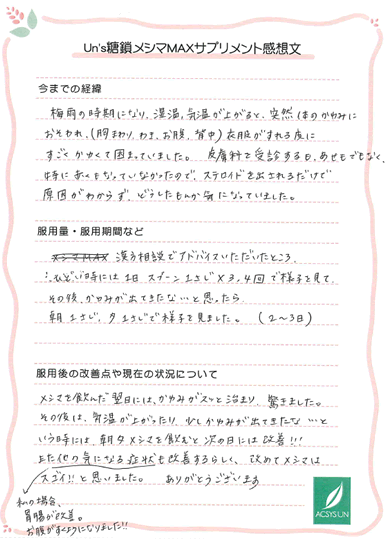 Un's糖鎖メシマMAXサプリメント感想文
今までの経緯
梅雨の時期になり、湿温、気温が上がると、突然体のかゆみに
おそわれ、(胸まわり、わき、お腹、背中)衣服がすれる度に
すごくかゆくて困まっていました。皮膚科を受診するも、あせもでもなく、
特に赤くもなっていなかったので、ステロイドを出されるだけで
原因がわからず、どうしたもんか気になっていました。
服用量・服用期間など
メシマMAX 漢方相談でアドバイスいただいたところ、
ひどい時には1日スプーン1さじ×3,4回で様子を見て、
その後、かゆみが出てきたな…と思ったら
朝1さじ、夕1さじで様子を見ました。(2〜3日)
服用後の改善点や現在の状況について
メシマを飲んだ翌日には、かゆみがスッと治まり、驚きました。
その後は、気温が上がったり、少しかゆみが出てきたな…と
いう時には、朝夕メシマを飲むと次の日には改善!!!
また他の気になる症状も改善するらしく、改めてメシマは
スゴイ!!と思いました。ありがとうございます
私の場合、
胃腸が改善。
お腹がすくようになりました!!
ACSYSUN